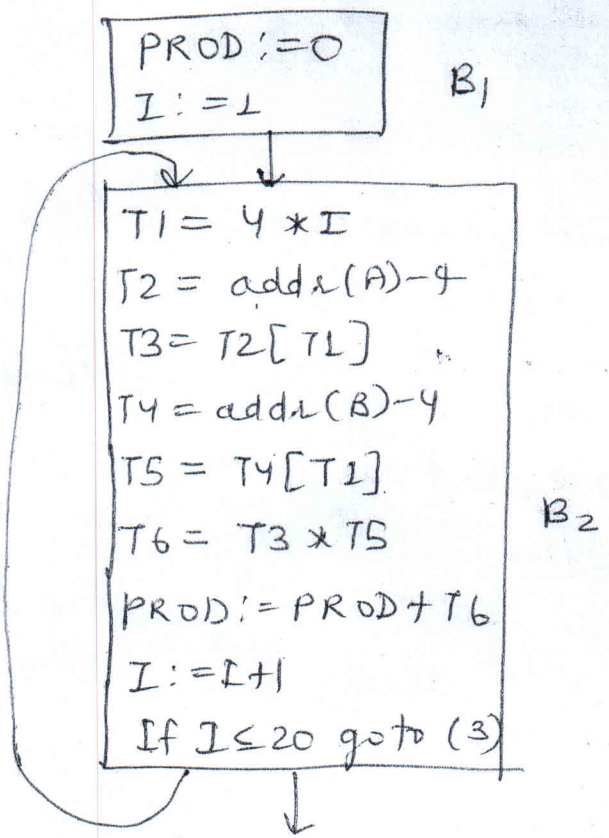 PROD:=0
I:=1
B1
T1= 4 *I
T2 = addr(A)-4
T3= T2[T1]
T4 = addr(B)-4
T5 = T4[T1]
T6= T3 * T5
B2
PROD:= PROD+ T6
I:=I+1
If I≤20 goto (3)